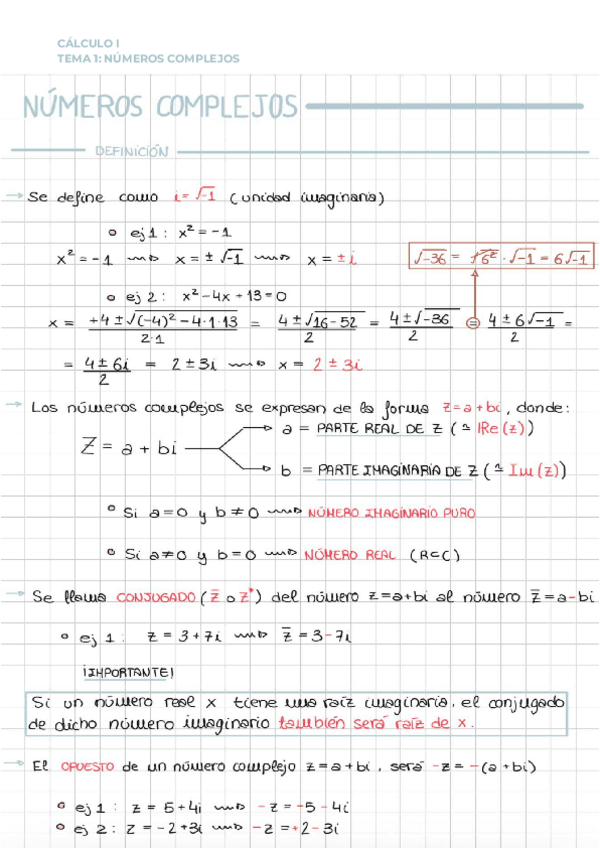 CÁLCULO I
TEMA 1: NÚMEROS COMPLEJOS
NÚMEROS COMPLEJOS
DEFINICIÓN
→ Se define como i = √-1 (unidad imaginaria)
o ej 1: x² = -1
x² = -1 ⟿ x = ± √-1 ⟿ x = ± i
√-36 = √6² · √-1 = 6√-1
o ej 2: x² - 4x + 13 = 0
x = +4 ± √(-4)² - 4·1·13 / 2·1 = 4 ± √16 - 52 / 2 = 4 ± √-36 / 2 = 4 ± 6√-1 / 2 =
= 4 ± 6i / 2 = 2 ± 3i ⟿ x = 2 ± 3i
→ Los números complejos se expresan de la forma z = a + bi, donde:
a = PARTE REAL DE Z ( IRe (z))
Z = a + bi
b = PARTE IMAGINARIA DE Z ( Im (z))
o Si a = 0 y b ≠ 0 ⟿ NÚMERO IMAGINARIO PURO
o Si a ≠ 0 y b = 0 ⟿ NÚMERO REAL (R⊂C)
→ Se llama CONJUGADO (z̄ o z*) del número z = a + bi al número z̄ = a - bi
o ej 1: z = 3 + 7i ⟿ z̄ = 3 - 7i
¡IMPORTANTE!
Si un número real x tiene una raíz imaginaria, el conjugado
de dicho número imaginario también será raíz de x.
→ El OPUESTO de un número complejo z = a + bi, será -z = -(a + bi)
o ej 1: z = 5 + 4i ⟿ -z = -5 - 4i
o ej 2: z = -2 + 3i ⟿ -z = +2 - 3i